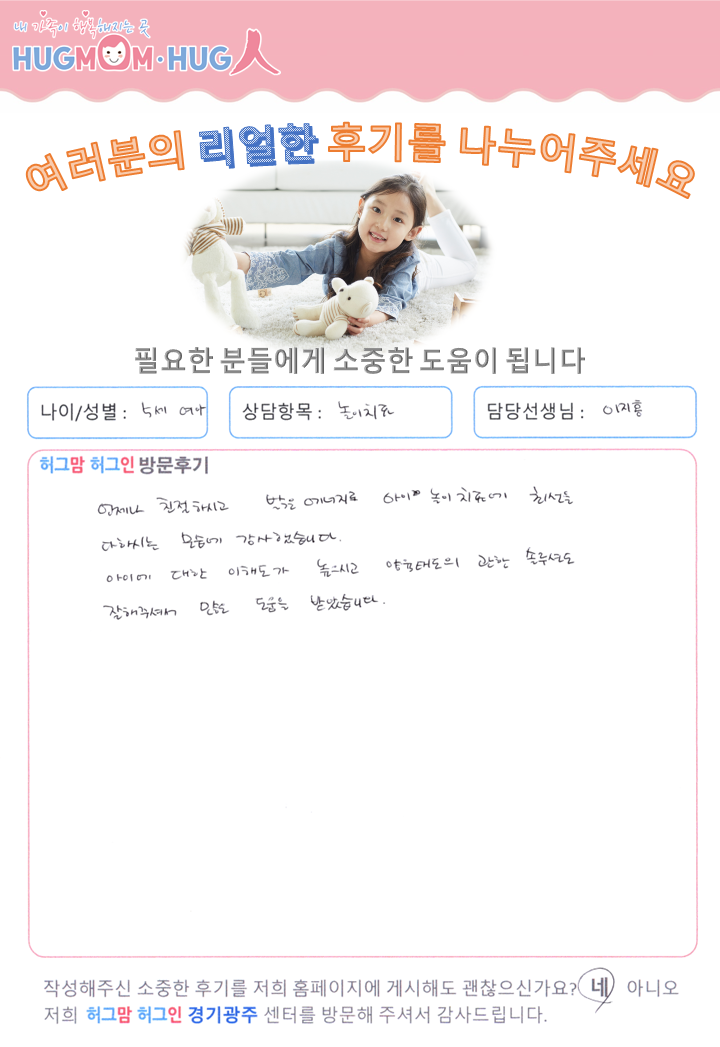 내 가족이 행복해지는 곳
HUGMOM·HUG人
여러분의 리얼한 후기를 나누어주세요
필요한 분들에게 소중한 도움이 됩니다
나이/성별 : 5세 여아
상담항목 : 놀이치료
담당선생님 : 이지흥
허그맘 허그인 방문후기
언제나 친절하시고 밝은 에너지로 아이 놀이치료에 최선을
다하시는 모습에 감사했습니다.
아이에 대한 이해도가 높으시고 양육태도의 관한 솔루션도
잘해주셔서 많은 도움을 받았습니다.
작성해주신 소중한 후기를 저희 홈페이지에 게시해도 괜찮으신가요? 네 아니오
저희 허그맘 허그인 경기광주 센터를 방문해 주셔서 감사드립니다.